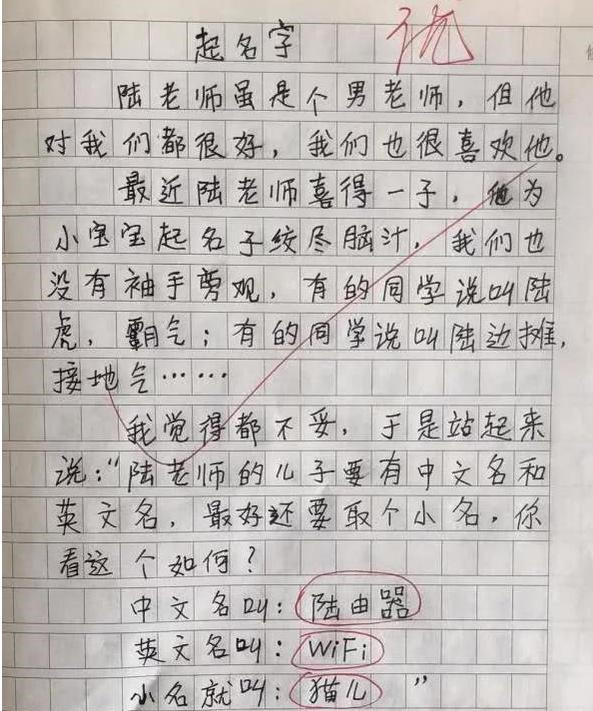 起名字 优
陆老师虽是个男老师，但他
对我们都很好，我们也很喜欢他。
最近陆老师喜得一子，他为
小宝宝起名子绞尽脑汁，我们也
没有袖手旁观，有的同学说叫陆
虎，霸气；有的同学说叫陆边摊，
接地气……
我觉得都不妥，于是站起来
说：“陆老师的儿子要有中文名和
英文名，最好还要取个小名，你
看这个如何？
中文名叫：陆由器
英文名叫：WiFi
小名就叫：猫儿”